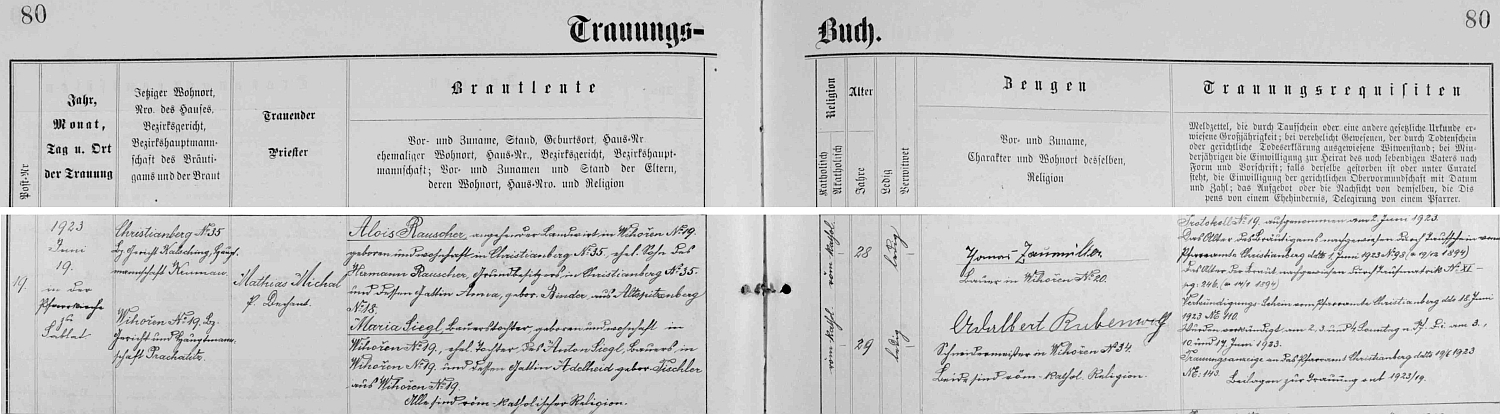 80
80
Trauungs-
Buch.
Post-Nr
Jahr,
Monat,
Tag u. Ort
der Trauung
Jetziger Wohnort,
Nro. des Hauses.
Bezirksgericht,
Bezirkshauptmann-
schaft des Bräuti-
gams und der Braut
Trauender
Priester
Brautleute
Vor- und Zuname, Stand, Geburtsort, Haus-Nr
ehemaliger Wohnort, Haus-Nr., Bezirksgericht, Bezirkshaupt-
mannschaft; Vor- und Zunamen und Stand der Eltern,
deren Wohnort, Haus-Nro. und Religion
Religion
Katholisch
Akatholisch
Alter
Jahre
Ledig
Verwitwet
Zeugen
Vor- und Zuname,
Charakter und Wohnort desselben,
Religion
Trauungsrequisiten
Meldzettel, die durch Taufschein oder eine andere gesetzliche Urkunde er-
wiesene Großjährigkeit; bei verehelicht Gewesenen, der durch Todtenschein
oder gerichtliche Todeserklärung ausgewiesene Witwenstand; bei Min-
derjährigen die Einwilligung zur Heirat des noch lebendigen Vaters nach
Form und Vorschrift; falls derselbe gestorben ist oder unter Curatel
steht, die Einwilligung der gerichtlichen Obervormundschaft mit Datum
und Zahl; das Aufgebot oder die Nachsicht von demselben, die Dis
pens von einem Ehehindernis, Delegirung von einem Pfarrer.
19.
1923
Juni
19.
in der
Pfarrkirche
zu
Sablat
Christianberg No 35
Bz. Gericht Kalsching, Haupt-
mannschaft Krummau.
Wihořen No 19. Bz.
Gericht und Hauptmann-
schaft Prachatitz.
Mathias Michal
p. Dechant.
Alois Rauscher, angehender Landwirt in Wihořen No 19.
geboren und wohnhaft in Christianberg No 35, ehel. Sohn des
Hermann Rauscher, Grundbesitzers in Christianberg No 35.
und dessen Gattin Anna, gebor. Binder aus Altspitzenberg
No 18.
Maria Siegl, Bauerstochter, geboren und wohnhaft in
Wihořen No 19., ehel. Tochter des Anton Siegl, Bauers in
Wihořen No 19. und dessen Gattin Adelheid gebor. Tischler
aus Wihořen No 19.
Alle sind röm-katholischer Religion.
röm kathl.
28
ledig
röm kathl.
29
ledig
Bauer in Wihořen No 20.
Adalbert Rubenwolf
Schneidermeister in Wihořen No 34.
Beide sind röm-kathol. Religion.
Protokoll No 19. aufgenommen am 2. Juni 1923.
Das Alter des Bräutigams nachgewiesen durch Taufschein vom
Pfarramte Christianberg ddto 1. Juni 1923 No 98
Das Alter der Braut nachgewiesen durch Taufmatrik No XI-
pg: 246.
Verkündigungs-Schein vom Pfarramte Christianberg ddto 18. Juni
1923 No 110.
Wurden verkündigt am 2. 3. und 4. Sonntag n. Pf. d. i. am 3.,
10. und 17. Juni 1923.
Trauungsanzeige an das Pfarramt Christianberg ddto 19/6 1923
No: 143.
Beilagen zur Trauung ent 1923/19.